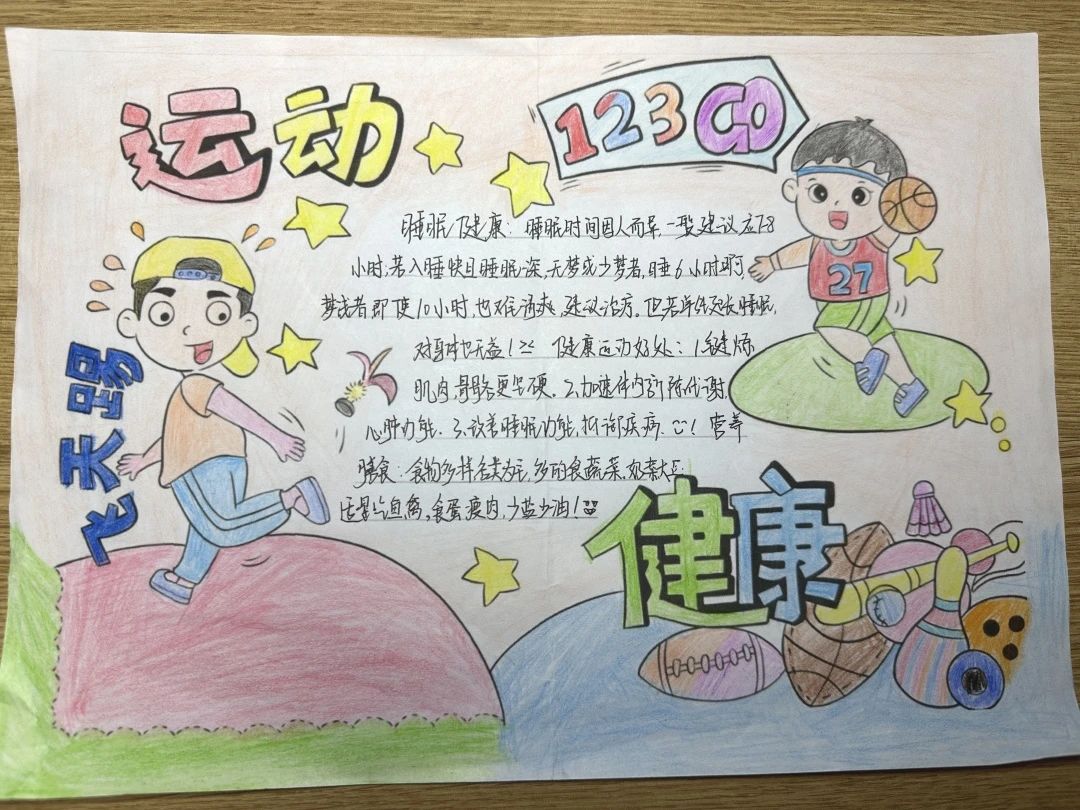 运动
123GO
睡眠健康：睡眠时间因人而异，一般建议应7-8
小时，若入睡快且睡眠深，无梦或少梦者，睡6小时即可，
梦或者即使10小时，也难清爽，建议治疗。但若单纯延长睡眠，
对身体也无益！ 健康运动好处：1.锻炼
肌肉，骨骼更坚硬。2.加速体内新陈代谢，
心肺功能。3.改善睡眠功能，抵御疾病。！营养
膳食：食物多样谷类为主，多的食蔬菜，奶类大豆
适量鱼禽，食蛋瘦肉，少盐少油！
27
飞天踢
健康